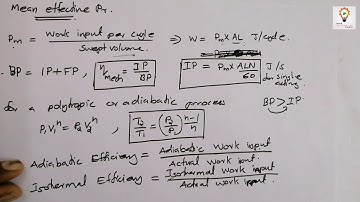 Mean effective Pr.
Pm = Work input per cycle / Swept volume. ⇒ W = Pm × AL J/cycle.
BP = IP + FP, η mech = IP / BP IP = Pm × ALN / 60 J/s for single acting.
for a polytropic or adiabatic process BP > IP.
P1V1^n = P2V2^n, T2/T1 = (P2/P1)^n-1/n
Adiabatic Efficiency = Adiabatic Work input / Actual work input.
Isothermal Efficiency = Isothermal Work input / Actual work input.